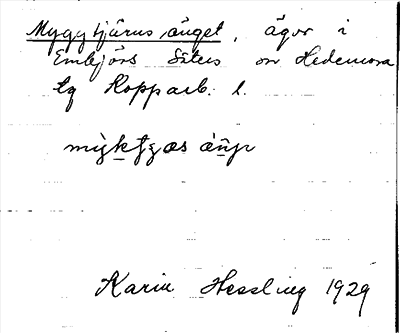 Myggtjärns änget, ägor i
Embjörs Säters sn Hedemora
tg Kopparb. l.
Karin Hessling 1929